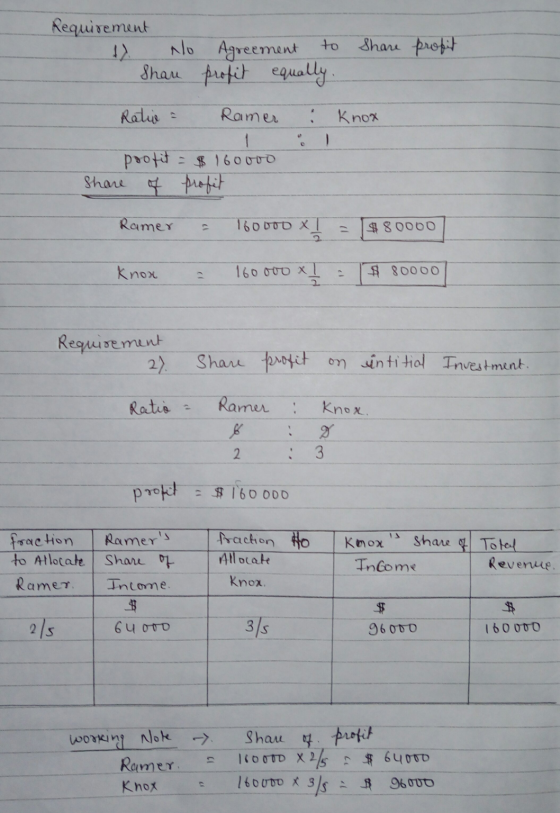 Requirement
1) No Agreement to Share profit
Share profit equally.
Ratio = Ramer : Knox
1 : 1
profit = $ 160000
Share of profit
Ramer = 160000 × 1/2 = $ 80000
Knox = 160000 × 1/2 = $ 80000
Requirement
2) Share profit on intitial Investment.
Ratio = Ramer : Knox.
6 : 9
2 : 3
profit = $ 160000
fraction to Allocate Ramer. | Ramer's Share of Income. | fraction to Allocate Knox. | Knox's Share of Income | Total Revenue.
$ $ $
2/5 64000 3/5 96000 160000
Working Note → Share of profit
Ramer. = 160000 × 2/5 = $ 64000
Knox = 160000 × 3/5 = $ 96000